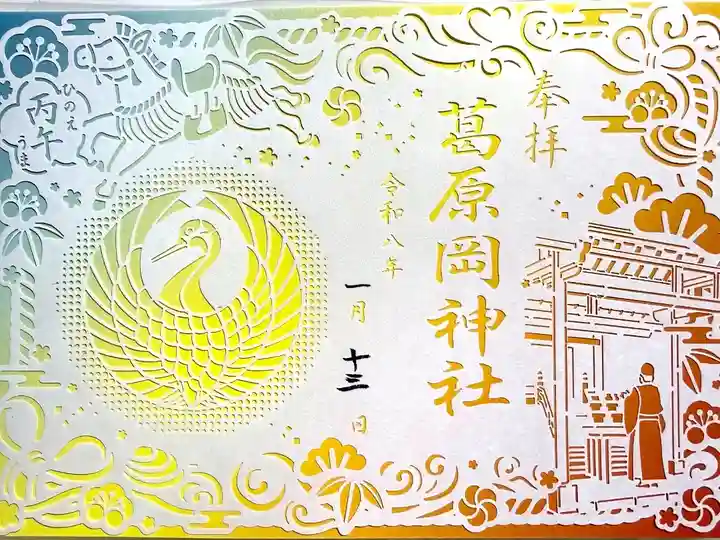 奉拝
葛原岡神社
令和八年
一月十三日
丙午
ひのえ
うま